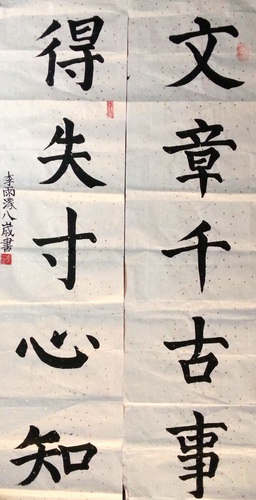 文章千古事
得失寸心知
李雨濛八歲書